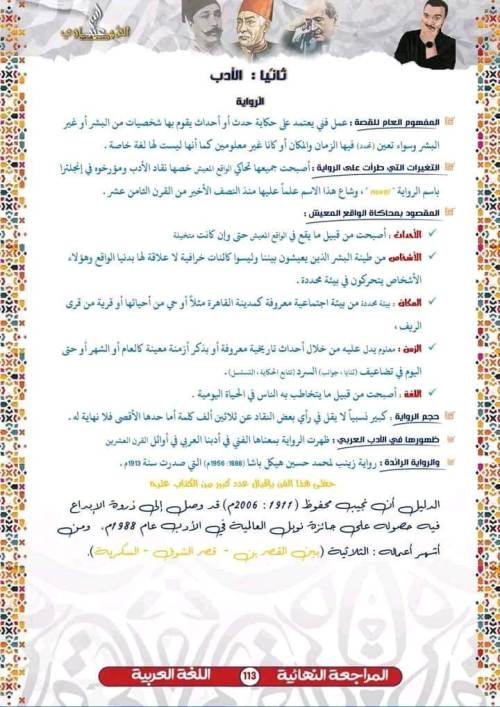 ثانيا : الأدب
الرواية
المفهوم العام للقصة : عمل فني يعتمد على حكاية حدث أو أحداث يقوم بها شخصيات من البشر أو غير
البشر وسواء تعين (تحدد) فيها الزمان والمكان أو كانا غير معلومين كما أنها ليست لها لغة خاصة .
التغيرات التي طرأت على الرواية : أصبحت جميعها تحاكي الواقع المعيش خصها نقاد الأدب ومؤرخوه في إنجلترا
باسم الرواية " novel " ، وشاع هذا الاسم علماً عليها منذ النصف الأخير من القرن الثامن عشر .
المقصود بمحاكاة الواقع المعيش :
الأحداث : أصبحت من قبيل ما يقع في الواقع المعيش حتى وإن كانت متخيلة
الأشخاص من طينة البشر الذين يعيشون بيننا وليسوا كائنات خرافية لا علاقة لها بدنيا الواقع وهؤلاء
الأشخاص يتحركون في بيئة محددة .
المكان : بيئة محددة من بيئة اجتماعية معروفة كمدينة القاهرة مثلاً أو حي من أحيائها أو قرية من قرى
الريف ،
الزمن : معلوم يدل عليه من خلال أحداث تاريخية معروفة أو بذكر أزمنة معينة كالعام أو الشهر أو حتى
اليوم في تضاعيف (ثنايا ، جوانب) السرد (تتابع الحكاية ، التسلسل) .
اللغة : أصبحت من قبيل ما يتخاطب به الناس في الحياة اليومية .
حجم الرواية : كبير نسبياً لا يقل في رأي بعض النقاد عن ثلاثين ألف كلمة أما حدها الأقصى فلا نهاية له .
ظهورها في الأدب العربي : ظهرت الرواية بمعناها الفني في أدبنا العربي في أوائل القرن العشرين
والرواية الرائدة : رواية زينب لمحمد حسين هيكل باشا (1888: 1956م) التي صدرت سنة 1913م .
حظى هذا الفن بإقبال عدد كبير من الكتاب عليه
الدليل أن نجيب محفوظ (1911 : 2006م) قد وصل إلى ذروة الإبداع
فيه حصوله على جائزة نوبل العالمية في الأدب عام 1988م، ومن
أشهر أعماله : الثلاثية (بين القصرين - قصر الشوق - السكرية).
المراجعة النهائية 113 اللغة العربية